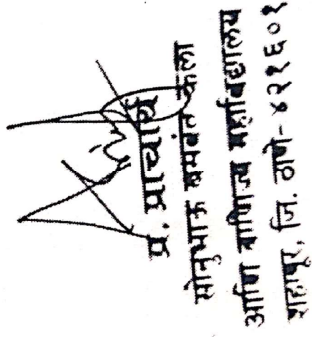 प्र. प्राचार्य
सोनुभाऊ बसवंत कला
आणि वाणिज्य महाविद्यालय
शहापूर, जि. ठाणे- ४२१६०१